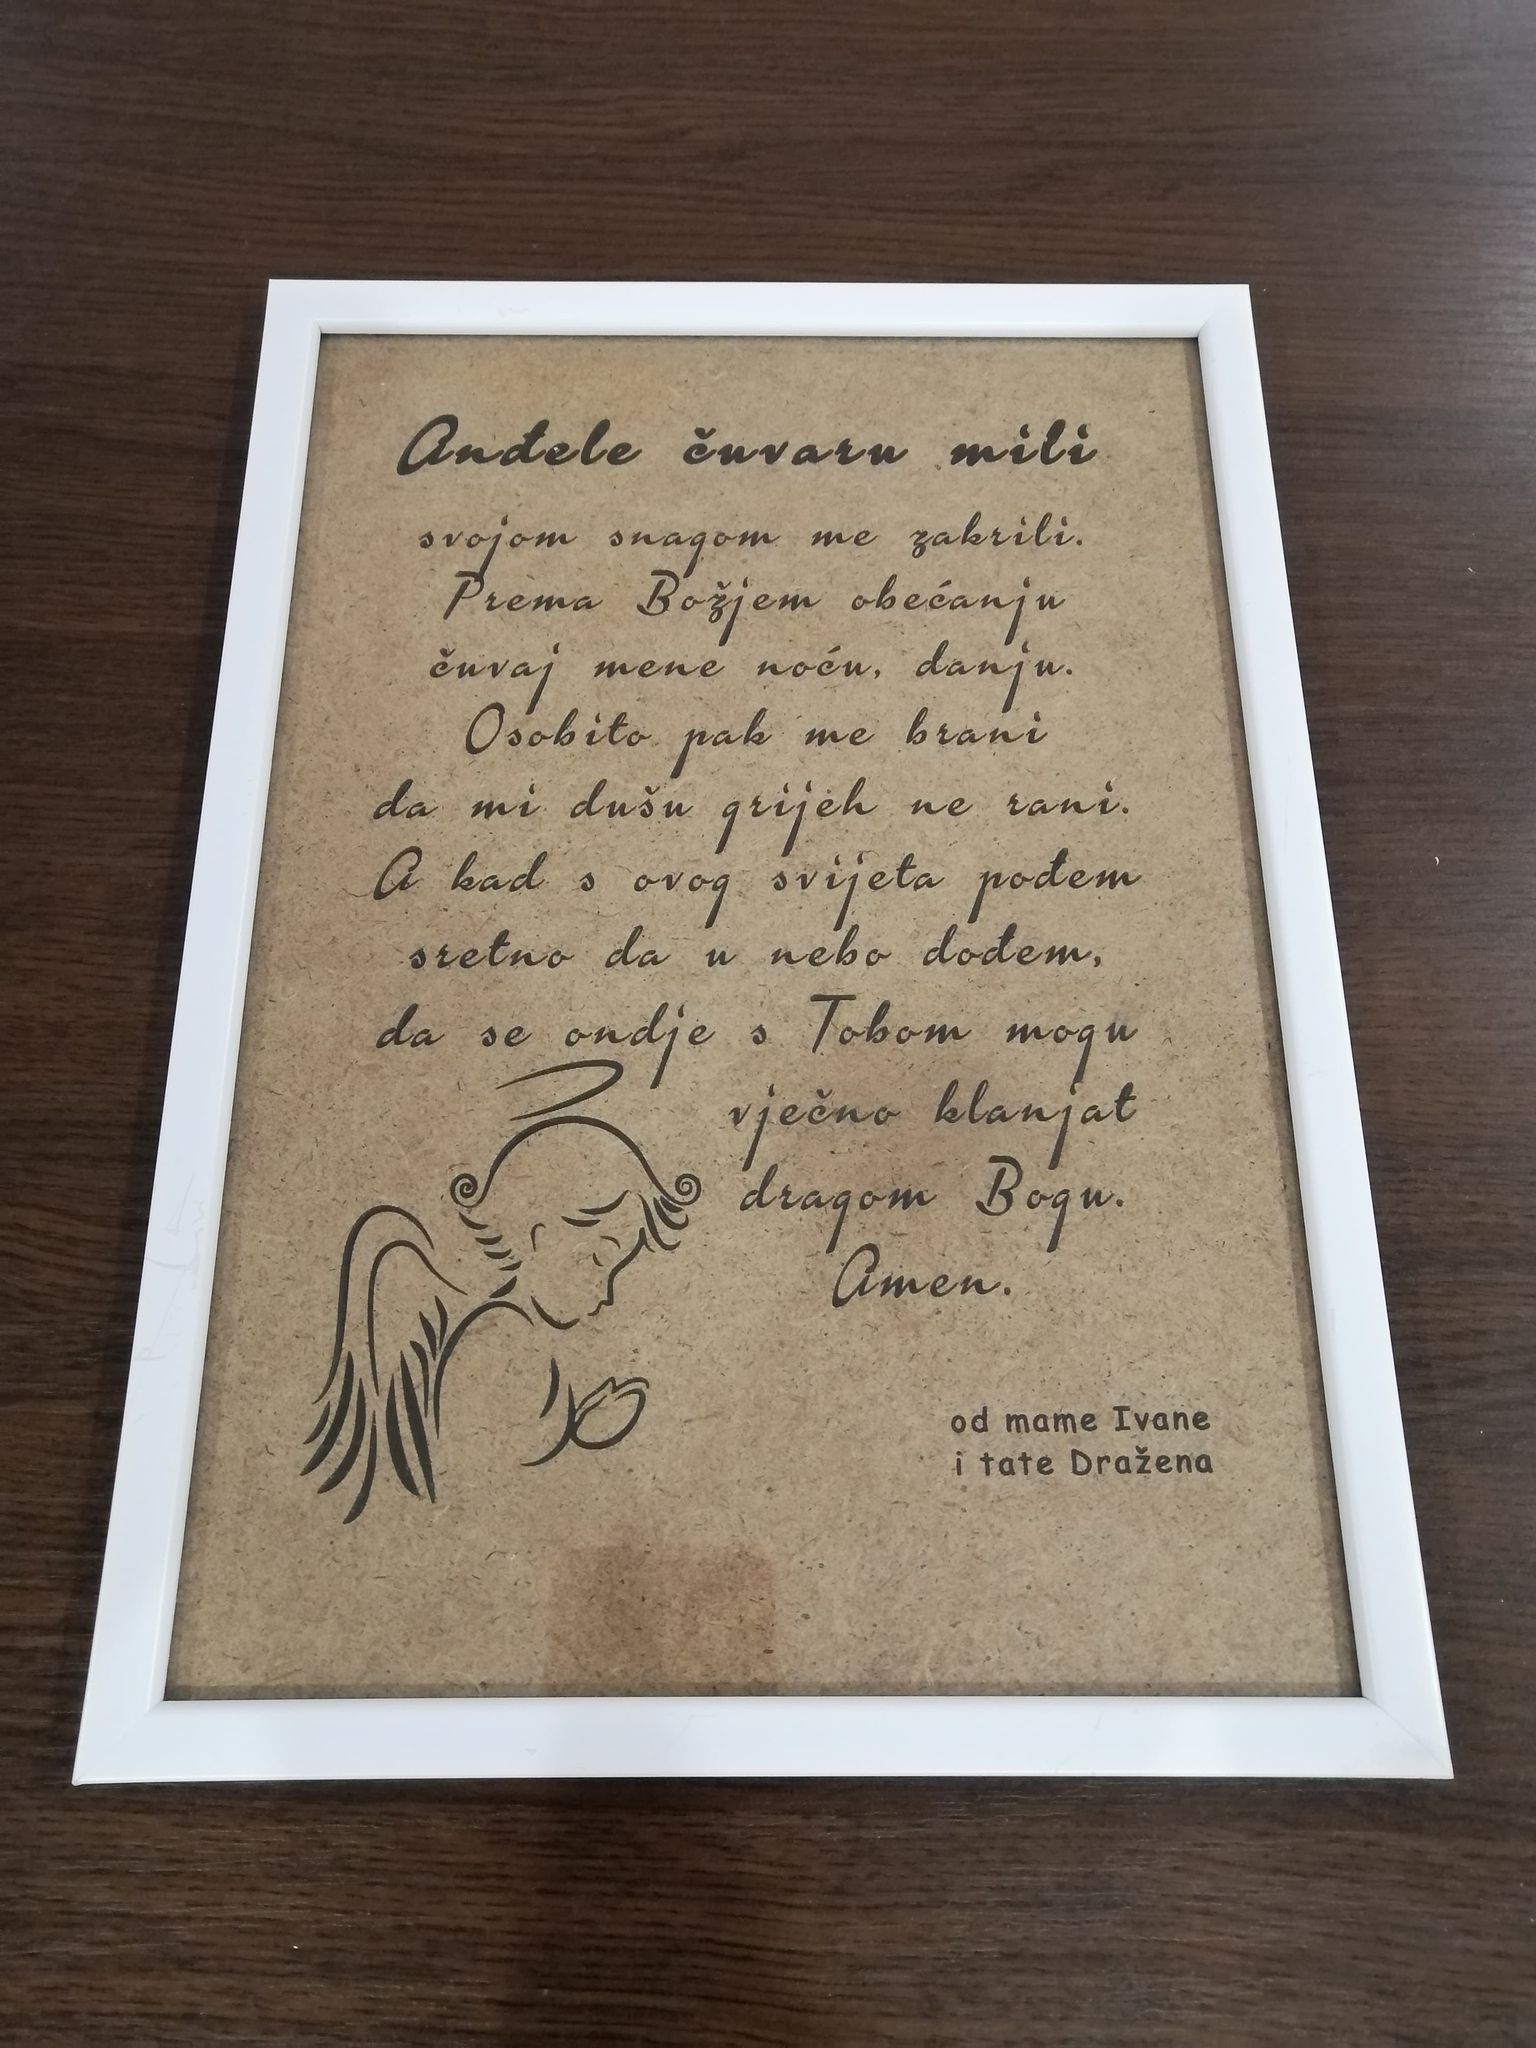 Anđele čuvaru mili
svojom snagom me zakrili.
Prema Božjem obećanju
čuvaj mene noću, danju.
Osobito pak me brani
da mi dušu grijeh ne rani.
A kad s ovog svijeta pođem
sretno da u nebo dođem,
da se ondje s Tobom mogu
vječno klanjat
dragom Bogu.
Amen.
od mame Ivane
i tate Dražena